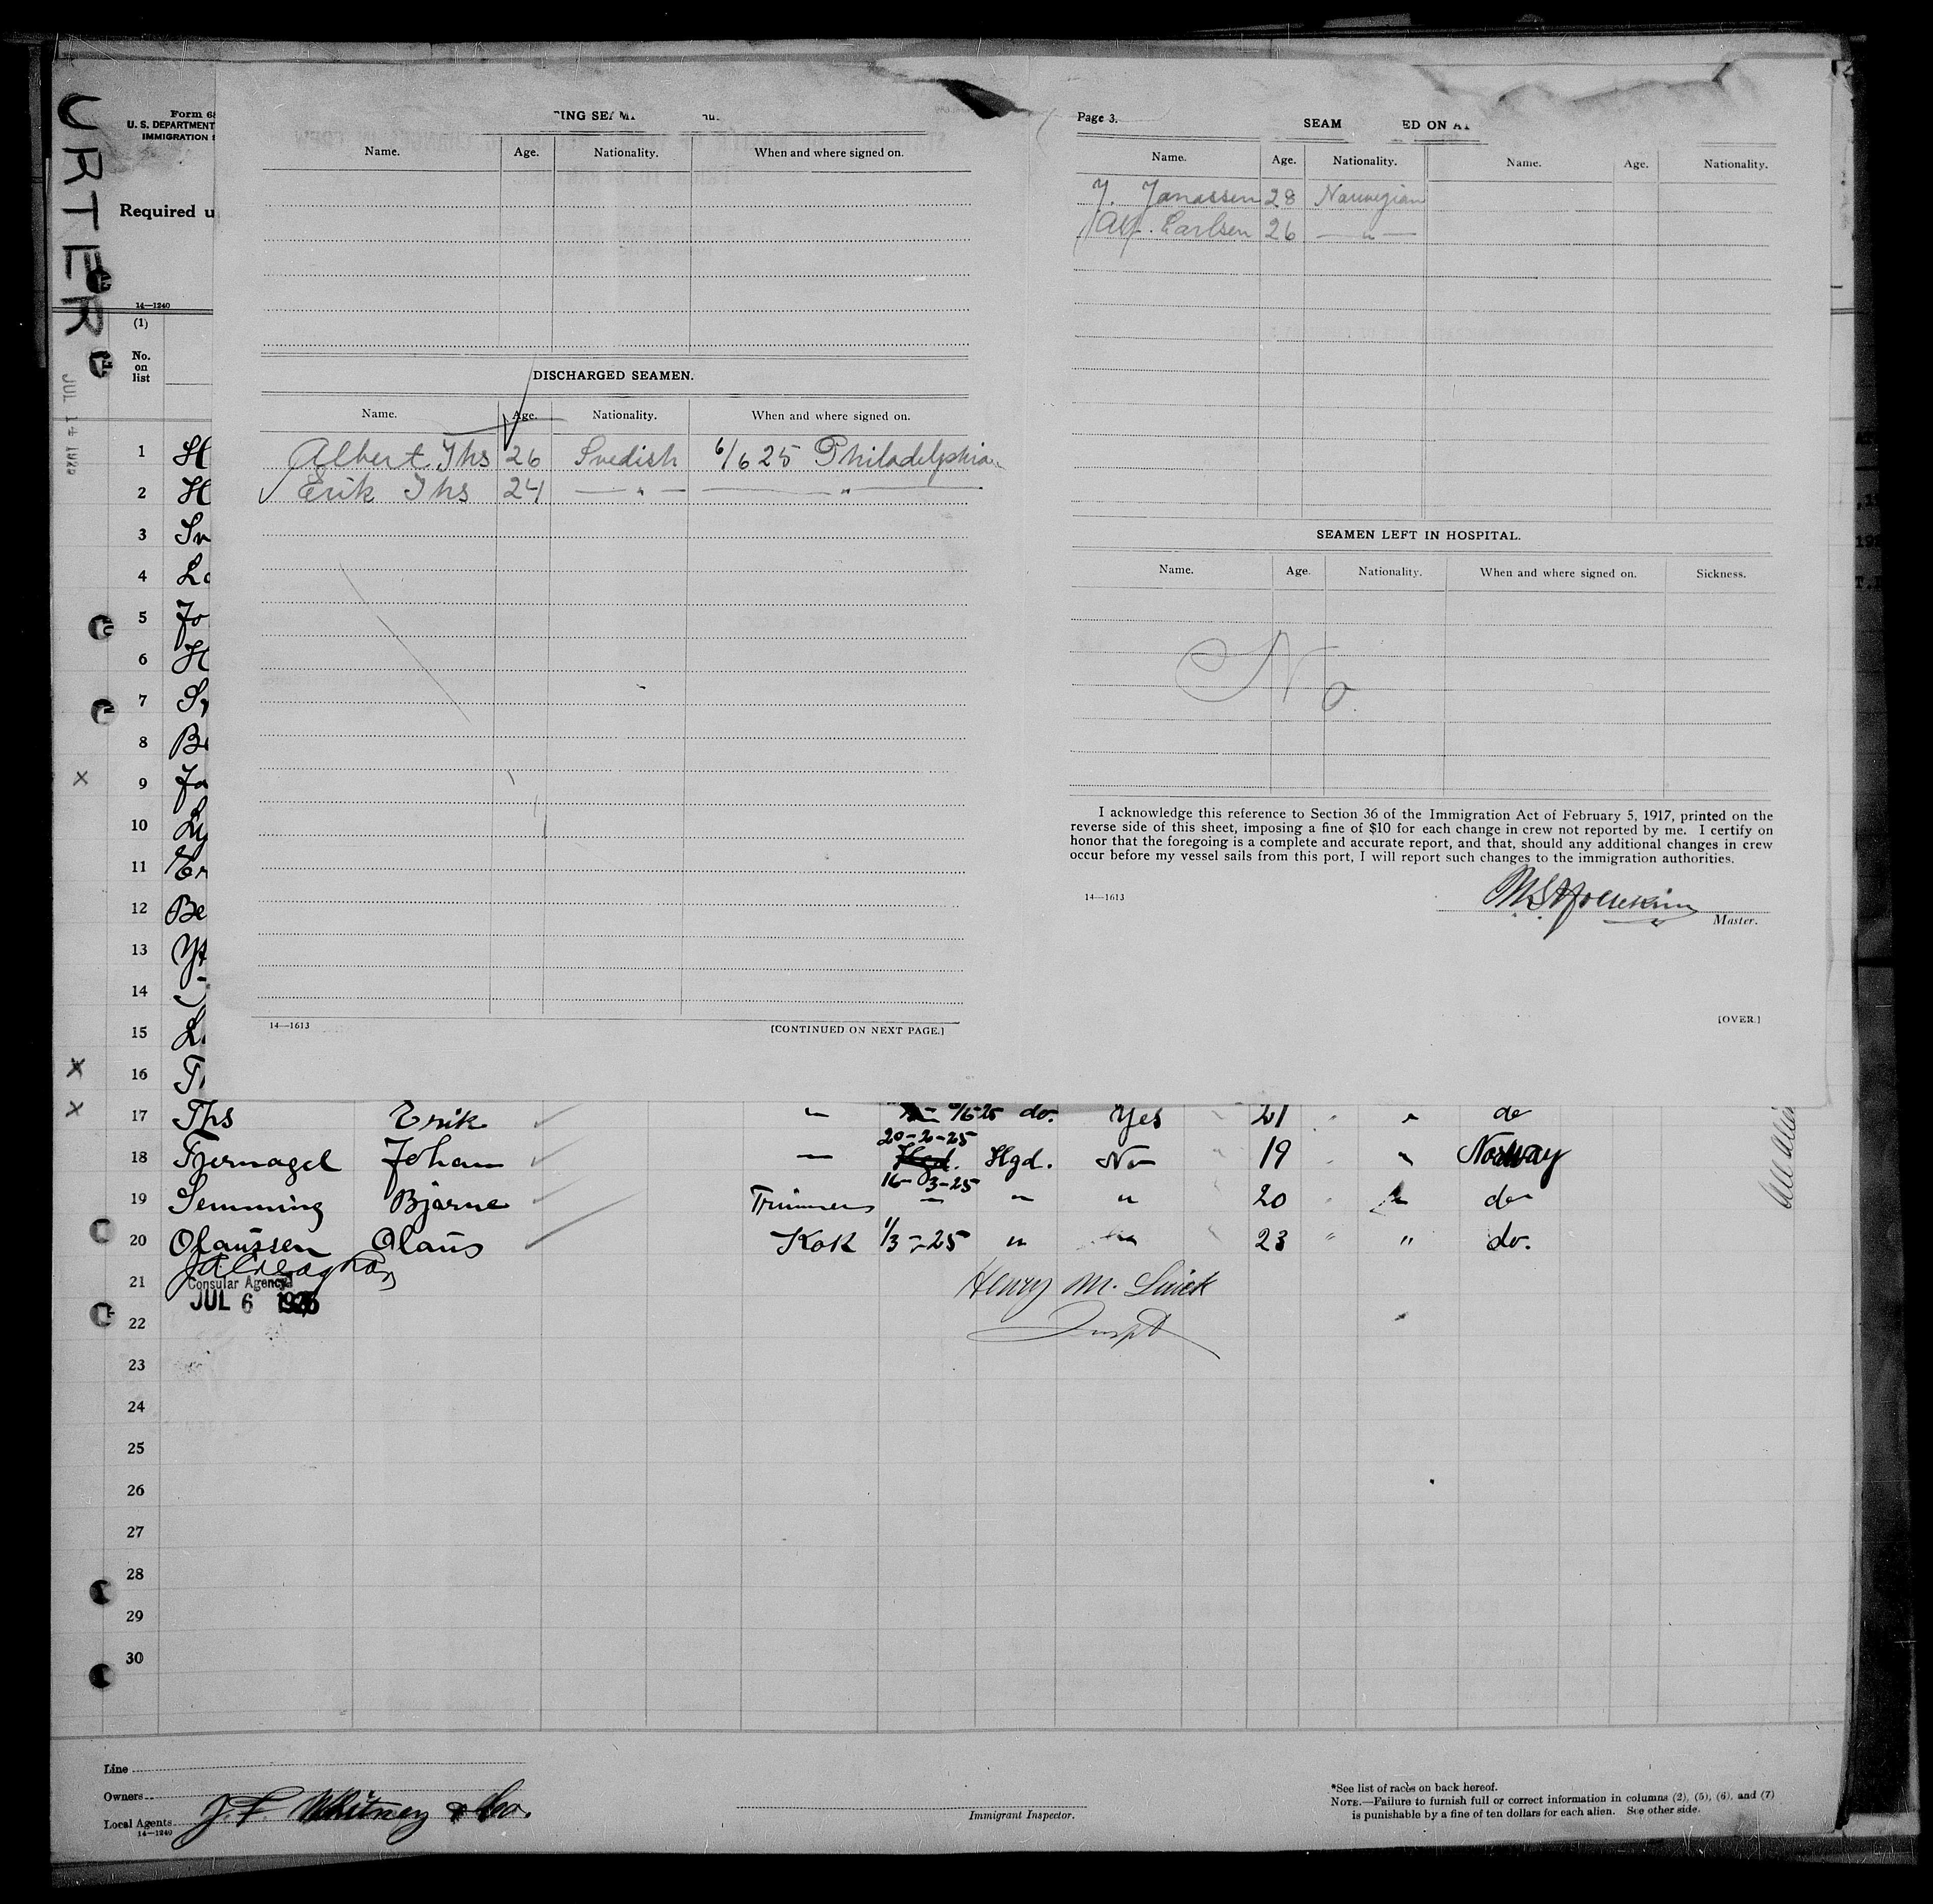 URTER
JUL 17 192
Form 68
U. S. DEPARTMENT
IMMIGRATION S
Required u
14—1240
(1)
No.
on
list
ING SEAM
Name. Age. Nationality. When and where signed on.
DISCHARGED SEAMEN.
Name. Age. Nationality. When and where signed on.
Albert Ihs 26 Svedish 6/6 25 Philadelphia
Erik Ihs 24 — " — — " —
14—1613 [CONTINUED ON NEXT PAGE.]
Page 3.
SEAM ED ON AT
Name. Age. Nationality. Name. Age. Nationality.
J. Janassen 28 Norwegian
Alf. Carlsen 26 — " —
SEAMEN LEFT IN HOSPITAL.
Name. Age. Nationality. When and where signed on. Sickness.
No
I acknowledge this reference to Section 36 of the Immigration Act of February 5, 1917, printed on the
reverse side of this sheet, imposing a fine of $10 for each change in crew not reported by me. I certify on
honor that the foregoing is a complete and accurate report, and that, should any additional changes in crew
occur before my vessel sails from this port, I will report such changes to the immigration authorities.
14—1613
Master.
[OVER.]
1 H
2 H
3 Sv
4 Lo
5 Jo
6 H
7 Sv
8 Be
9 Ja
10 Ly
11 Er
12 Be
13
14
15 L
16
x 17 Ihs Erik " 6/6-25 do. Yes 21 " do
20-2-25
18 Tjernagel Johan — Hgd. Hgd. No 19 " Norway
16-3-25
19 Semming Bjarne Trimmer — " " 20 " do
20 Olaussen Olaus Kok 1/3-25 " " 23 " " do.
21 Consular Agency Henry M.
JUL 6 1925
22 Inspt
23
24
25
26
27
28
29
30
Line
Owners
Local Agents J F Whitney & Co.
14—1240
Immigrant Inspector.
*See list of races on back hereof.
NOTE.—Failure to furnish full or correct information in columns (2), (5), (6), and (7)
is punishable by a fine of ten dollars for each alien. See other side.